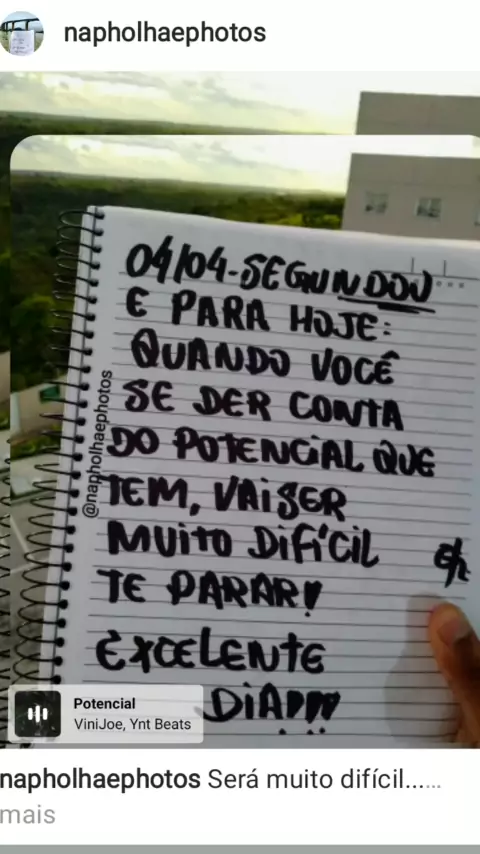 napholhaephotos
04/04-SEGUNDOU...
E PARA HOJE:
QUANDO VOCÊ
SE DER CONTA
DO POTENCIAL QUE
TEM, VAI SER
MUITO DIFÍCIL
TE PARAR!
EXCELENTE
DIA!!!
@napholhaephotos
Potencial
ViniJoe, Ynt Beats
napholhaephotos Será muito difícil......
mais